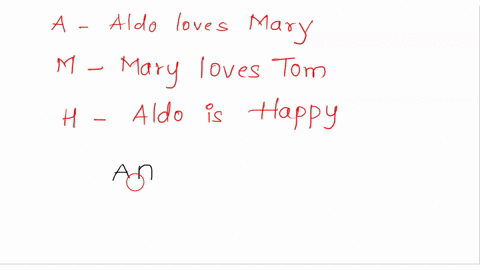 A - Aldo loves Mary
M - Mary loves Tom
H - Aldo is Happy
A n